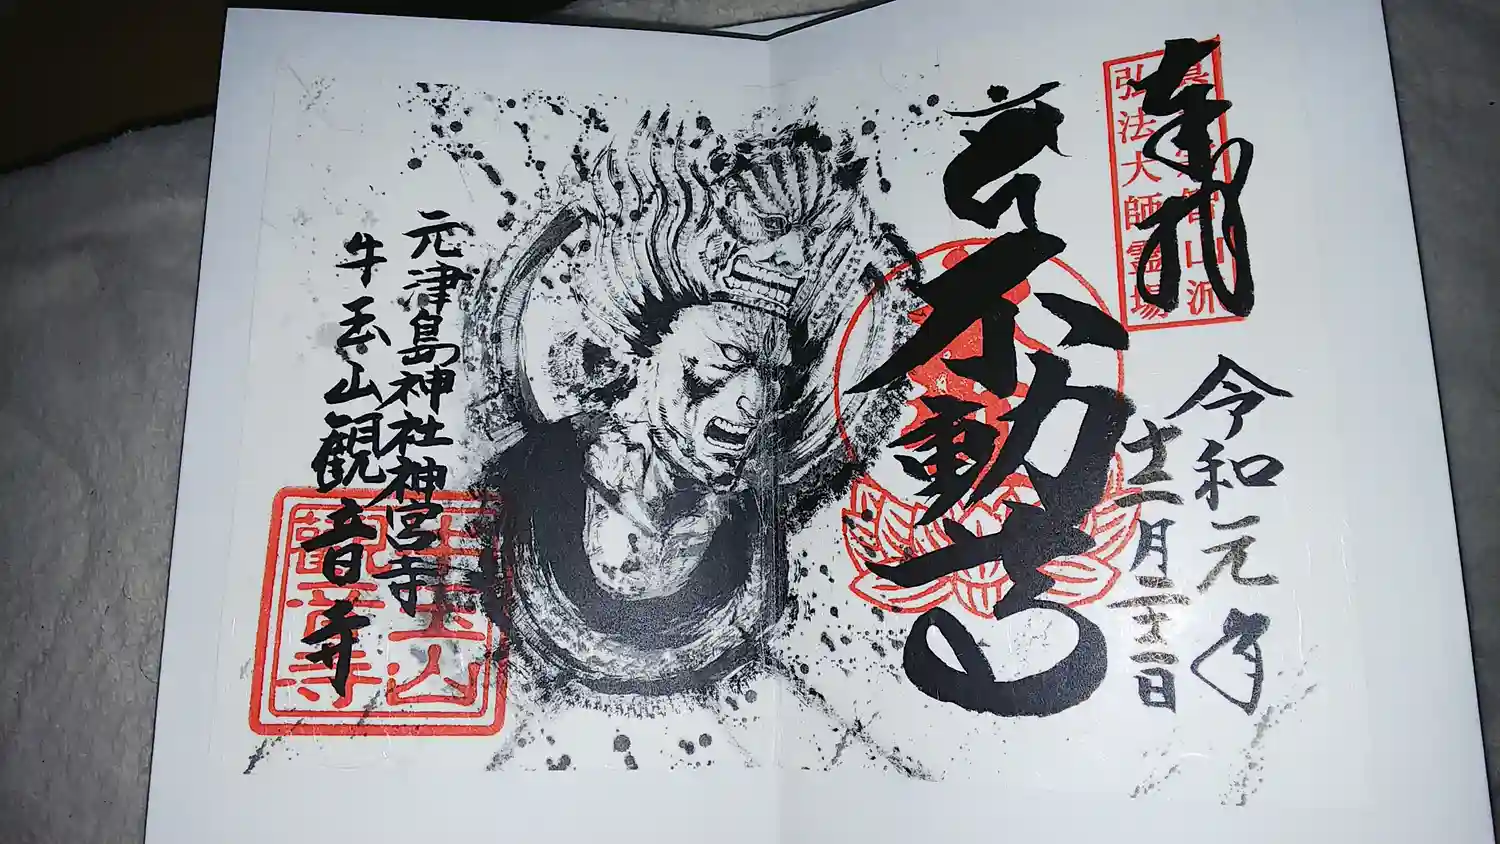 奉拝
真言宗智山派
弘法大師霊場
令和元年
十二月二十二日
不動尊
元津島神社神宮寺
牛玉山観音寺
牛玉山
観音寺